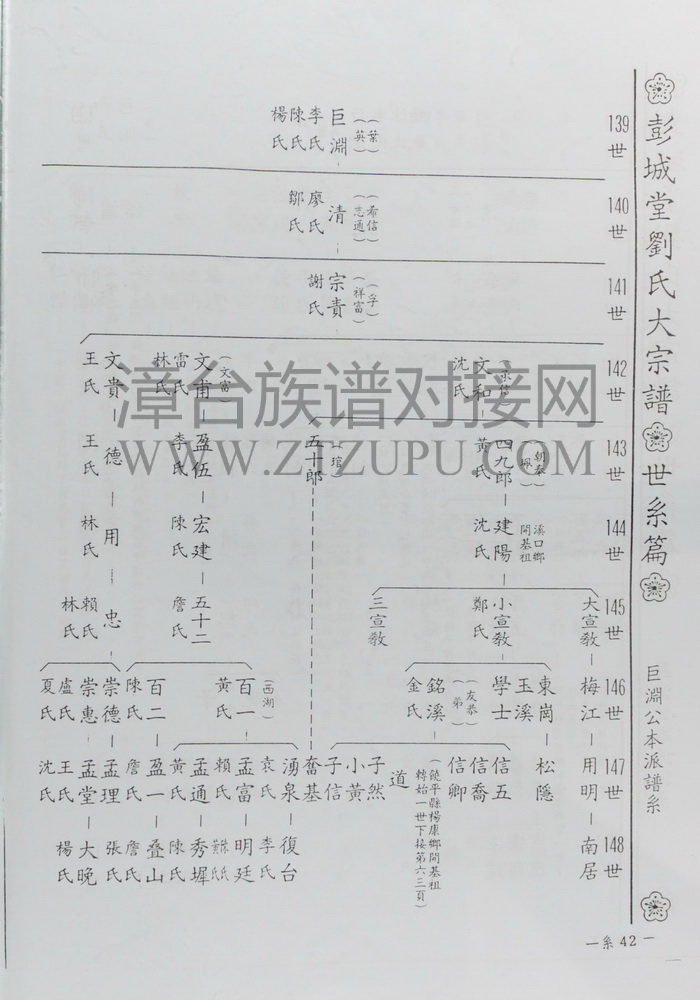 彭城堂劉氏大宗譜
世系篇
巨淵公本派譜系
一系42一
139世
巨淵
(葉英)
李氏
陳氏
楊氏
140世
清
(希信)
(志通)
廖氏
鄒氏
141世
宗貴
(孚)
(祥富)
謝氏
142世
文和
沈氏
文甫
(文富)
雷氏
林氏
文貴
王氏
143世
四九郎
黃氏
五十郎
盈伍
李氏
德
王氏
144世
建陽
溪口鄉
開基祖
沈氏
宏建
陳氏
用
林氏
145世
大宣教
小宣教
鄭氏
三宣教
五十二
詹氏
忠
賴氏
林氏
146世
梅江
東崗
玉溪
學士
銘溪
(友恭)
(弟)
金氏
百一
(西湖)
黃氏
百二
陳氏
崇德
崇惠
盧氏
夏氏
147世
用明
松隱
信五
信喬
信卿
道
(饒平縣楊康鄉開基祖
轉始一世下接第六三頁)
子然
小黃
子信
奮基
湧泉
袁氏
孟富
賴氏
孟通
黃氏
盈一
詹氏
孟理
孟堂
王氏
沈氏
148世
南居
復台
李氏
明廷
秀墀
陳氏
叠山
詹氏
張氏
大晚
楊氏
漳台族谱对接网
WWW.ZTZUPU.COM